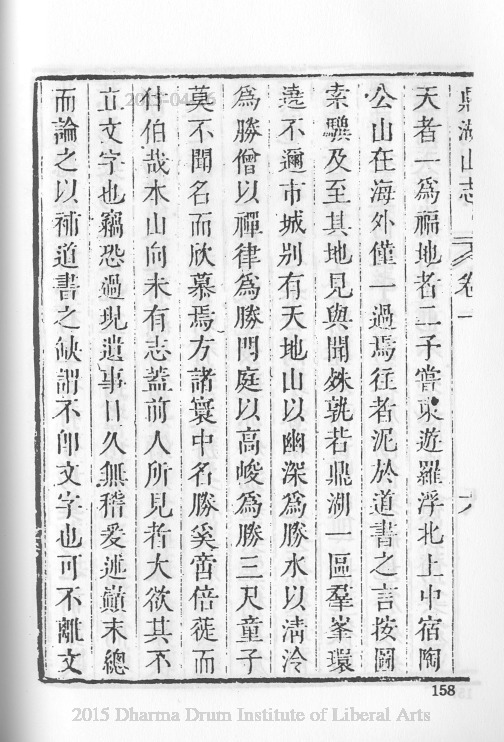 鼎湖山志 卷一 六
天者一爲福地者二予嘗東遊羅浮北上中宿陶
公山在海外僅一過焉往者泥於道書之言按圖
索驥及至其地見與聞殊孰若鼎湖一區羣峯環
遶不邇市城別有天地山以幽深爲勝水以清泠
爲勝僧以禪律爲勝門庭以高峻爲勝三尺童子
莫不聞名而欣慕焉方諸寰中名勝奚啻倍蓰而
什伯哉本山向未有志葢前人所見者大欲其不
立文字也竊恐過現遺事日久無稽爰述巔末總
而論之以補道書之缺謂不卽文字也可不離文
158
2015 Dharma Drum Institute of Liberal Arts